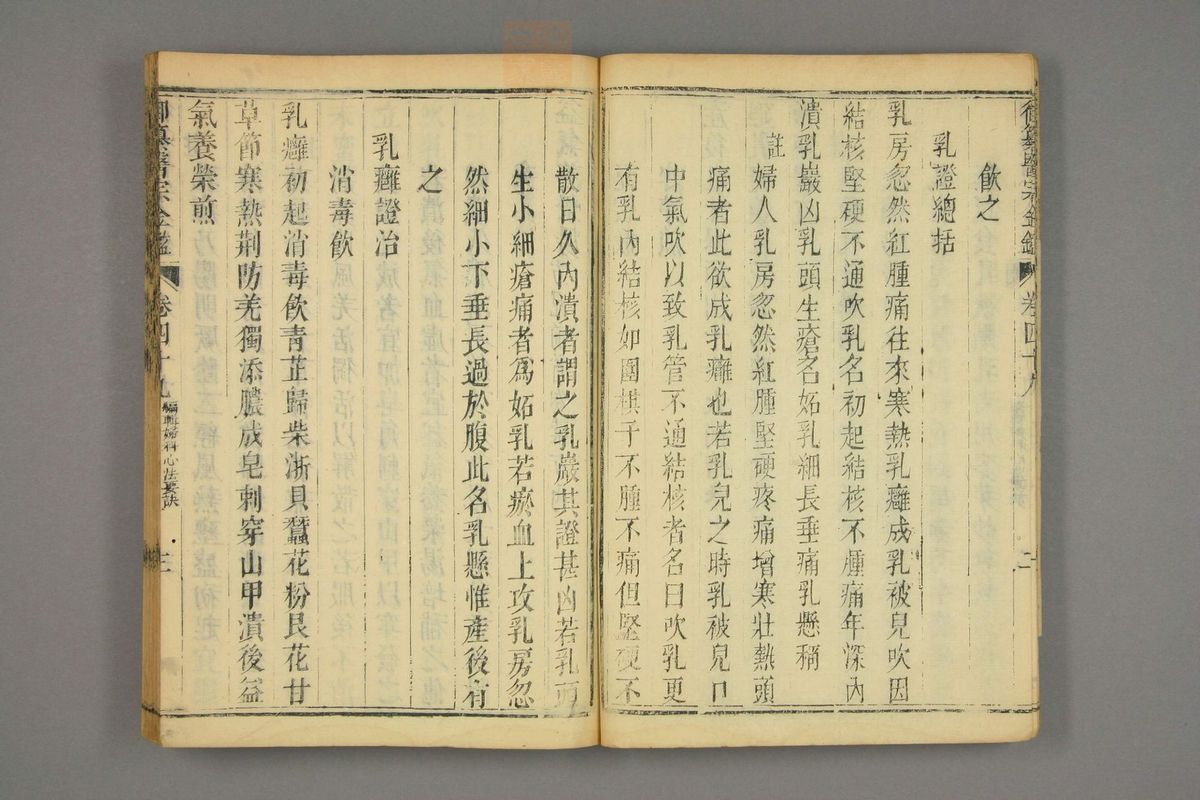 御纂醫宗金鑑 卷四十九 二
飲之
乳證總括
乳房忽然紅腫痛往來寒熱乳癰成乳被兒吹因
結核堅硬不通吹乳名初起結核不腫痛年深內
潰乳巖凶乳頭生瘡名妬乳細長垂痛乳懸稱
註婦人乳房忽然紅腫堅硬疼痛增寒壯熱頭
痛者此欲成乳癰也若乳兒之時乳被兒口
中氣吹以致乳管不通結核者名曰吹乳更
有乳內結核如圍棋子不腫不痛但堅硬不
散日久內潰者謂之乳巖其證甚凶若乳頭
生小細瘡痛者為妬乳若瘀血上攻乳房忽
然細小下垂長過於腹此名乳懸惟產後有
之
乳癰證治
消毒飲
乳癰初起消毒飲青芷歸柴浙貝蠶花粉艮花甘
草節寒熱荆防羌獨添膿成皂刺穿山甲潰後益
氣養榮煎
御纂醫宗金鑑 卷四十九 編輯婦科心法要訣 三